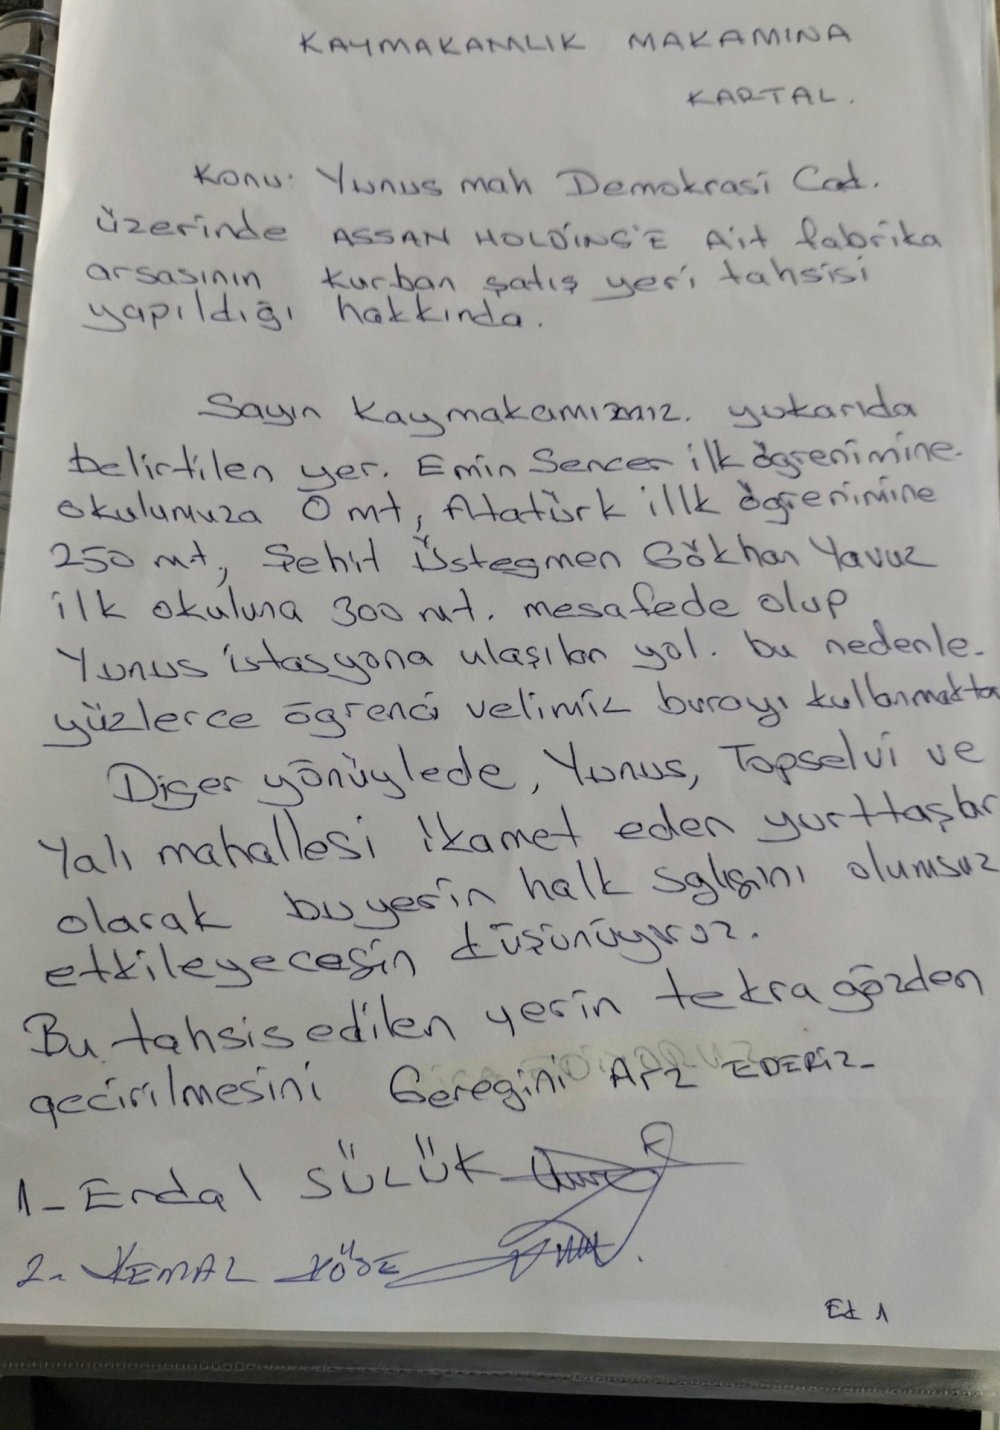 KAYMAKAMLIK MAKAMINA
KARTAL.
Konu: Yunus mah Demokrasi Cad.
üzerinde ASSAN HOLDİNG'E Ait fabrika
arsasının kurban şatış yeri tahsisi
yapıldığı hakkında.
Sayın Kaymakamımız. yukarıda
belirtilen yer. Emin Sencer ilk öğrenimine
okulumuza 0 mt, Atatürk illk öğrenimine
250 mt, Şehit Üsteğmen Gökhan Yavuz
ilk okuluna 300 mt. mesafede olup
Yunus istasyona ulaşılan yol. bu nedenle
yüzlerce öğrenci velimiz burayı kullanmakta
Diğer yönüylede, Yunus, Topselvi ve
Yalı mahallesi ikamet eden yurttaşlar
olarak bu yerin halk sğlığını olumsuz
etkileyeceğin düşünüyoruz.
Bu tahsis edilen yerin tekra gözden
geçirilmesini Gereğini Arz EDERİZ-
1- Erdal SÜLÜK
2- KEMAL KÖSE
Ek 1